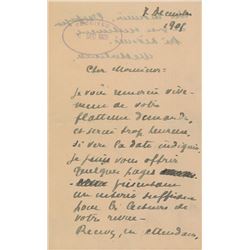 7 Décembre
1901
Cher Monsieur:
Je vous remercie vive-
ment de votre
flatteuse demande,
et serais trop heureux,
si vers la date indiquée
je puis vous offrir
quelques pages
présentant
un intérêt suffisant
pour les lecteurs de
votre revue.
Recevez, en attendant,